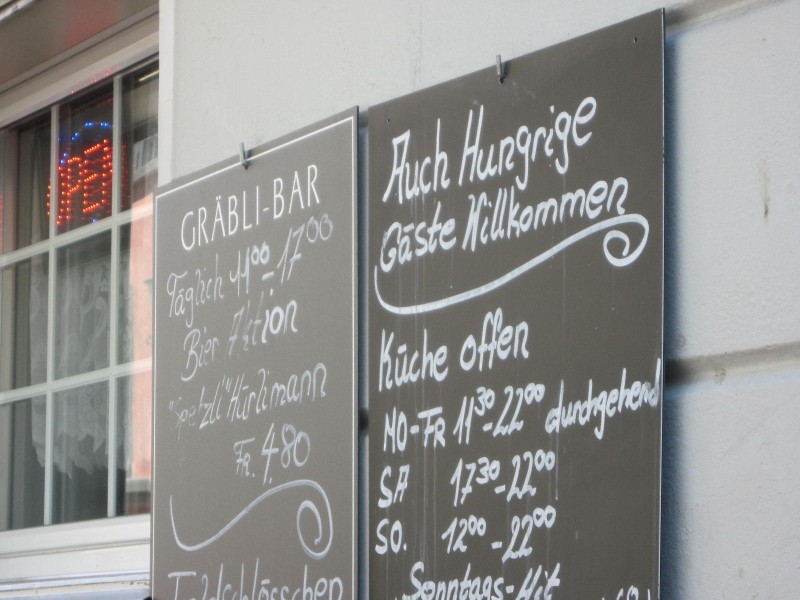 OPEN
GRÄBLI-BAR
Täglich 11⁰⁰-17⁰⁰
Bier Aktion
"Spetzli" Hürlimann
Fr. 4.80
Feldschlösschen
Auch Hungrige
Gäste Willkommen
Küche offen
MO-FR 11³⁰-22⁰⁰ durchgehend
SA 17³⁰-22⁰⁰
SO. 12⁰⁰-22⁰⁰
Sonntags-Hit